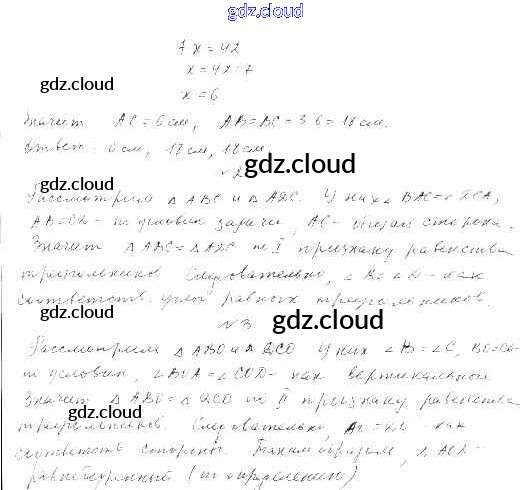 gdz.cloud
7x = 42
x = 42:7
gdz.cloud gdz.cloud
x = 6
Значит AC = 6 см, AB = BC = 3·6 = 18 см.
Ответ: 6 см, 18 см, 18 см.
gdz.cloud
№2
Рассмотрим △ABC и △ADC. У них ∠BAC = ∠DCA,
AB = CD - по условию задачи, AC - общая сторона.
gdz.cloud
Значит △ABC = △ADC по I признаку равенства
треугольников. Следовательно, ∠B = ∠D - как
соответств. углы равных треугольников.
№3 gdz.cloud
gdz.cloud
Рассмотрим △ABO и △DCO. У них ∠B = ∠C, BO = CO -
по условию, ∠BOA = ∠COD - как вертикальные
Значит △ABO = △DCO по II признаку равенства
треугольников. Следовательно, - как
gdz.cloud gdz.cloud
соответств стороны. Таким образом, △AOD -
равнобедренный (по определению)